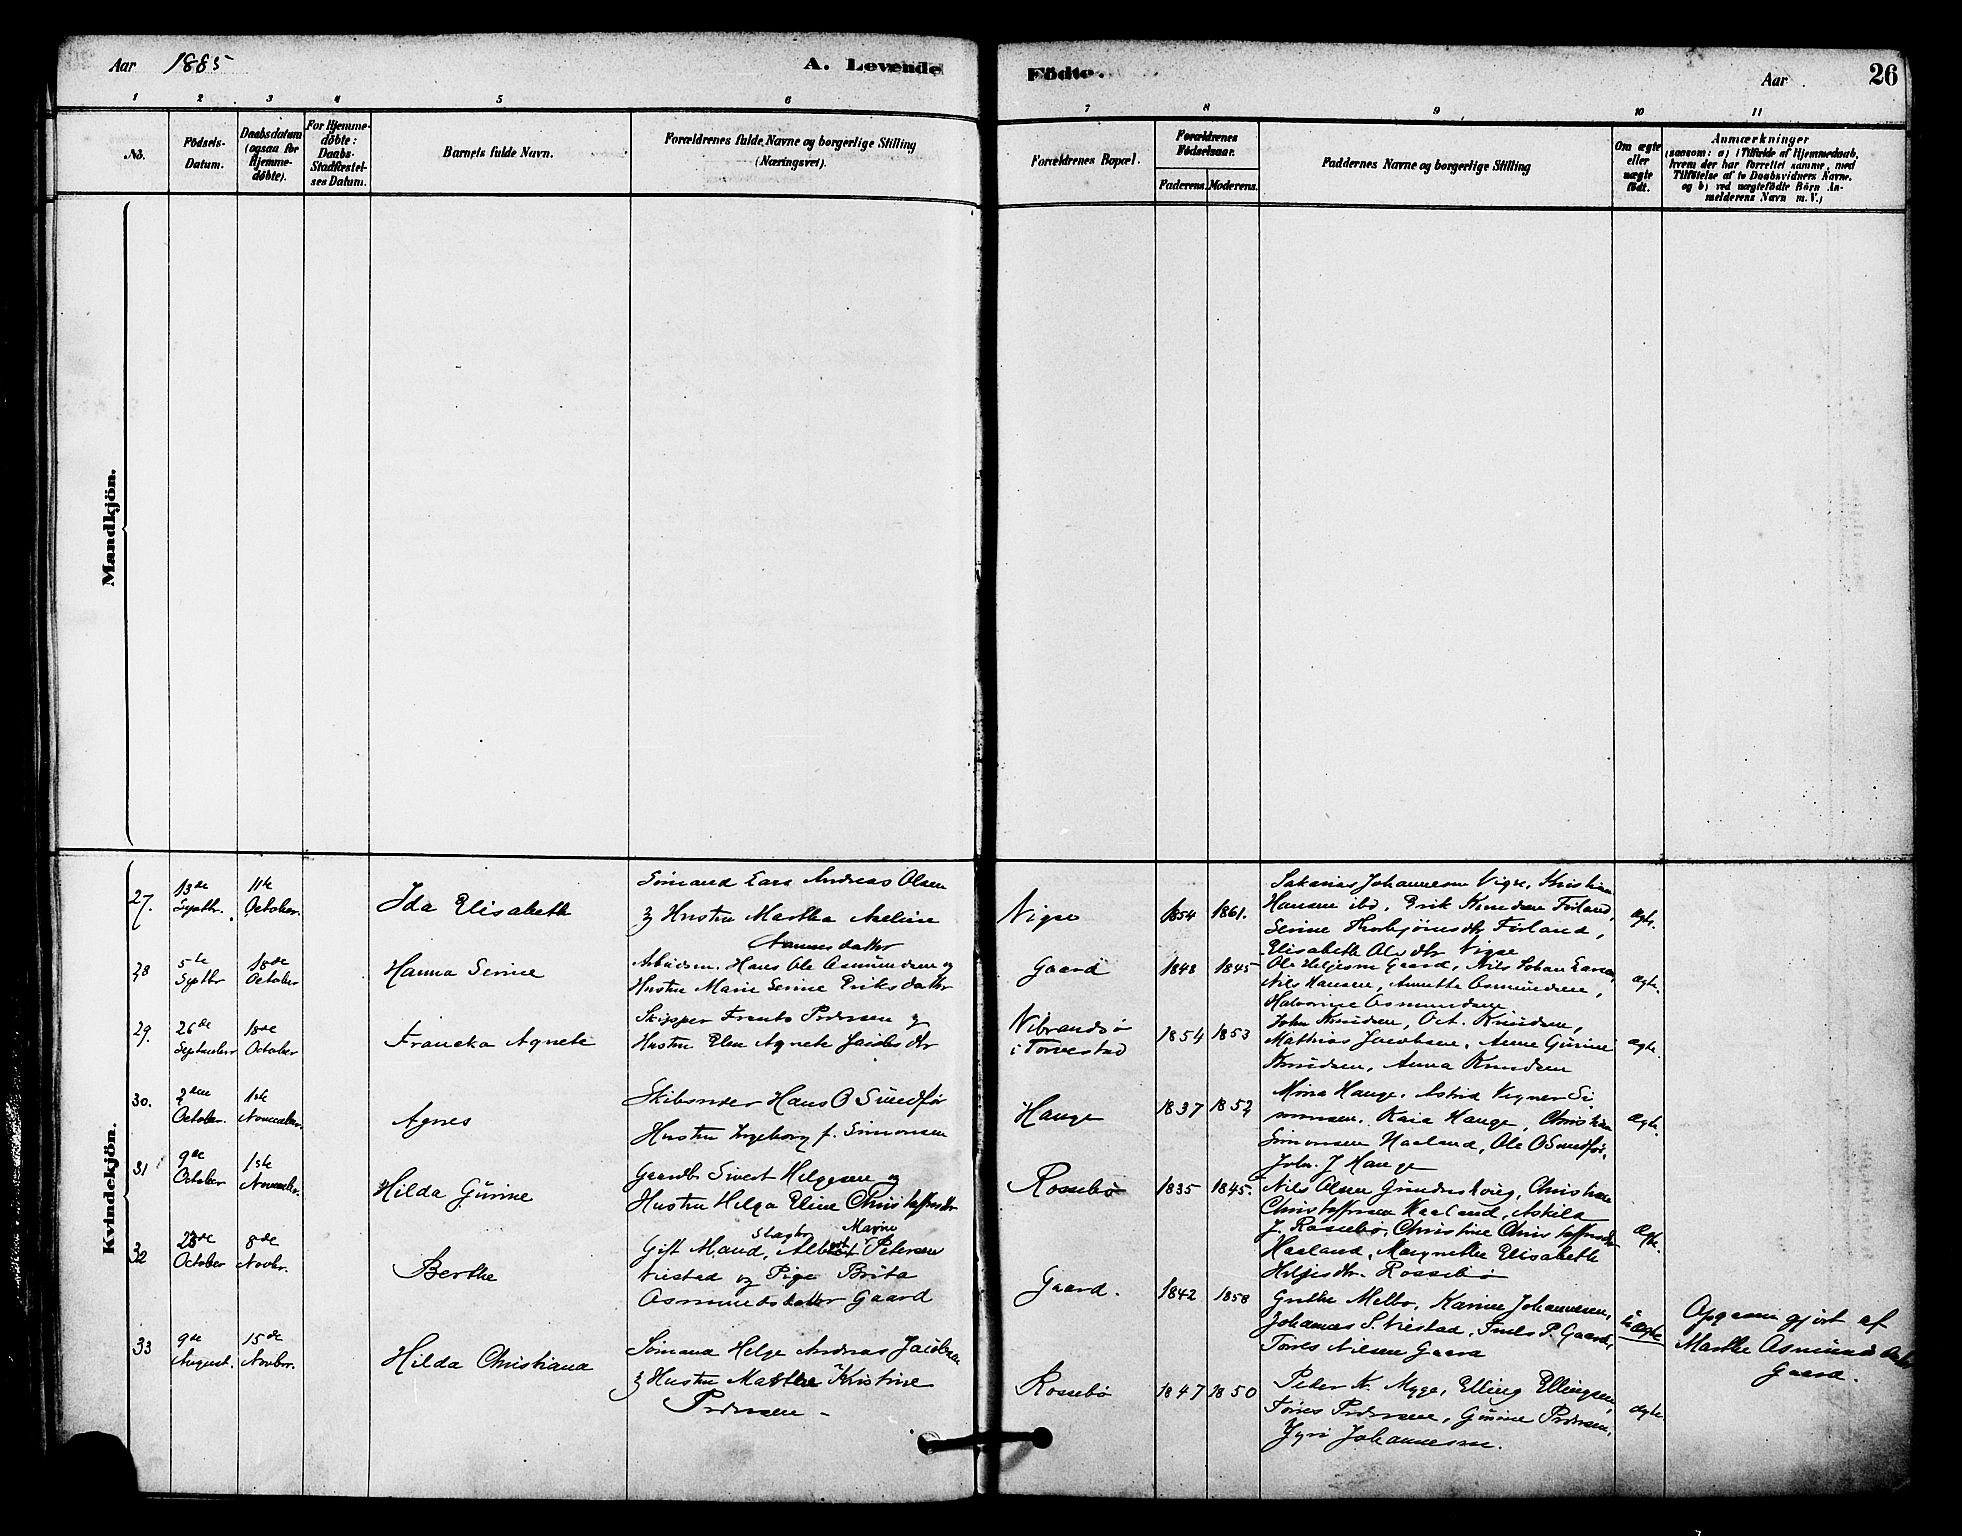 Aar 1885
A. Levende
Födte.
Aar
26
1 2 3 4 5 6 7 8 9 10 11
No.
Födsels-
Datum.
Daabsdatum
(ogsaa for
Hjemme-
döbte).
For Hjemme-
döbte:
Daabs-
Stadfæstel-
ses Datum.
Barnets fulde Navn.
Forældrenes fulde Navne og borgerlige Stilling
(Næringsvei).
Forældrenes Bopæl.
Forældrenes
Födselsaar.
Faderens. Moderens.
Faddernes Navne og borgerlige Stilling
Om ægte
eller
uægte
födt.
Anmærkninger
(saasom: a) i Tilfælde af Hjemmedaab,
hvem der har forrettet samme, med
Tilföielse af to Daabsvidners Navne.
og b) ved uægtefödte Börn An-
melderens Navn m. V.)
Mandkjön.
Kvindekjön.
27.
13de
Septbr.
11te
October.
Ida Elisabeth
Sömand Lars Andreas Olsen
& Hustru Martha Axeline
Hannesdatter
Vigse
1854 1861.
Sakarias Johannesen Vigse, Kristian
Hansen ibd, Erik Knudsen Forland,
Serine Thorbjörnsdtr Forland,
Elisabeth Olsdtr Vigse
ægte.
28
5te
Septbr
18de
October
Hanna Serine
Arbeidsm. Hans Ole Asmundsen og
Hustru Marie Serine Eriksdatter
Gaard
1848 1845
Ole Helgesen Gaard, Nils Johan Larsen
Nils Hansen, Annette Asmundsen,
Halvorine Asmundsen
ægte.
29.
26de
September
18de
October
Francka Agnete
Skipper Frants Pedersen &
Hustru Elen Agnete Jacobsdtr
Vibrandsö
i Torvestad
1854 1853
John Knudsen, Oct. Knudsen,
Mathias Jacobsen, Anne Gurine
Knudsen, Anna Knudsen
ægte.
30.
2den
October.
1ste
November.
Agnes
Skibsreder Hans O Sundför
Hustru Ingeborg f. Simonsen
Hauge
1837 1852
Mina Hauge, Astrid Vegner Si
monsen, Kaia Hauge, Christian
Simonsen Haaland, Ole O Sundför,
John J Hauge
ægte.
31
9de
October
1ste
November.
Hilda Gurine
Gaardb. Sivert Helgesen og
Hustru Helga Eline Christoffersdtr
Rossebö
1835 1845.
Nils Olsen Gunderskaug, Christian
Christoffersen Haaland, Askild
J. Rossebö, Christine Christoffersdtr
Haaland, Margrethe Elisabeth
Helgesdtr. Rossebö
ægte.
32
23de
October
8de
Novbr.
Berthe
Slagter Marino
Gift Mand, Albert Petersen
Niestad og Pige Brita
Asmundsdatter Gaard
Gaard.
1842 1858
Grethe Melbo, Karine Johannesen,
Johannes S. Niestad, P. Gaard,
Torres Nilsen Gaard
uægte
Opgaven gjort af
Marthe Asmundsdatter
Gaard.
33
9de
August.
15de
Novbr.
Hilda Christiana
Sömand Helge Andreas Jacobsen
& Hustru Marthe Kristine
Pedersen -
Rossebö
1847 1850
Peder N. Mygge, Elling Ellingsen,
Torres Pedersen, Gurine Pedersen,
Johannesen.
ægte